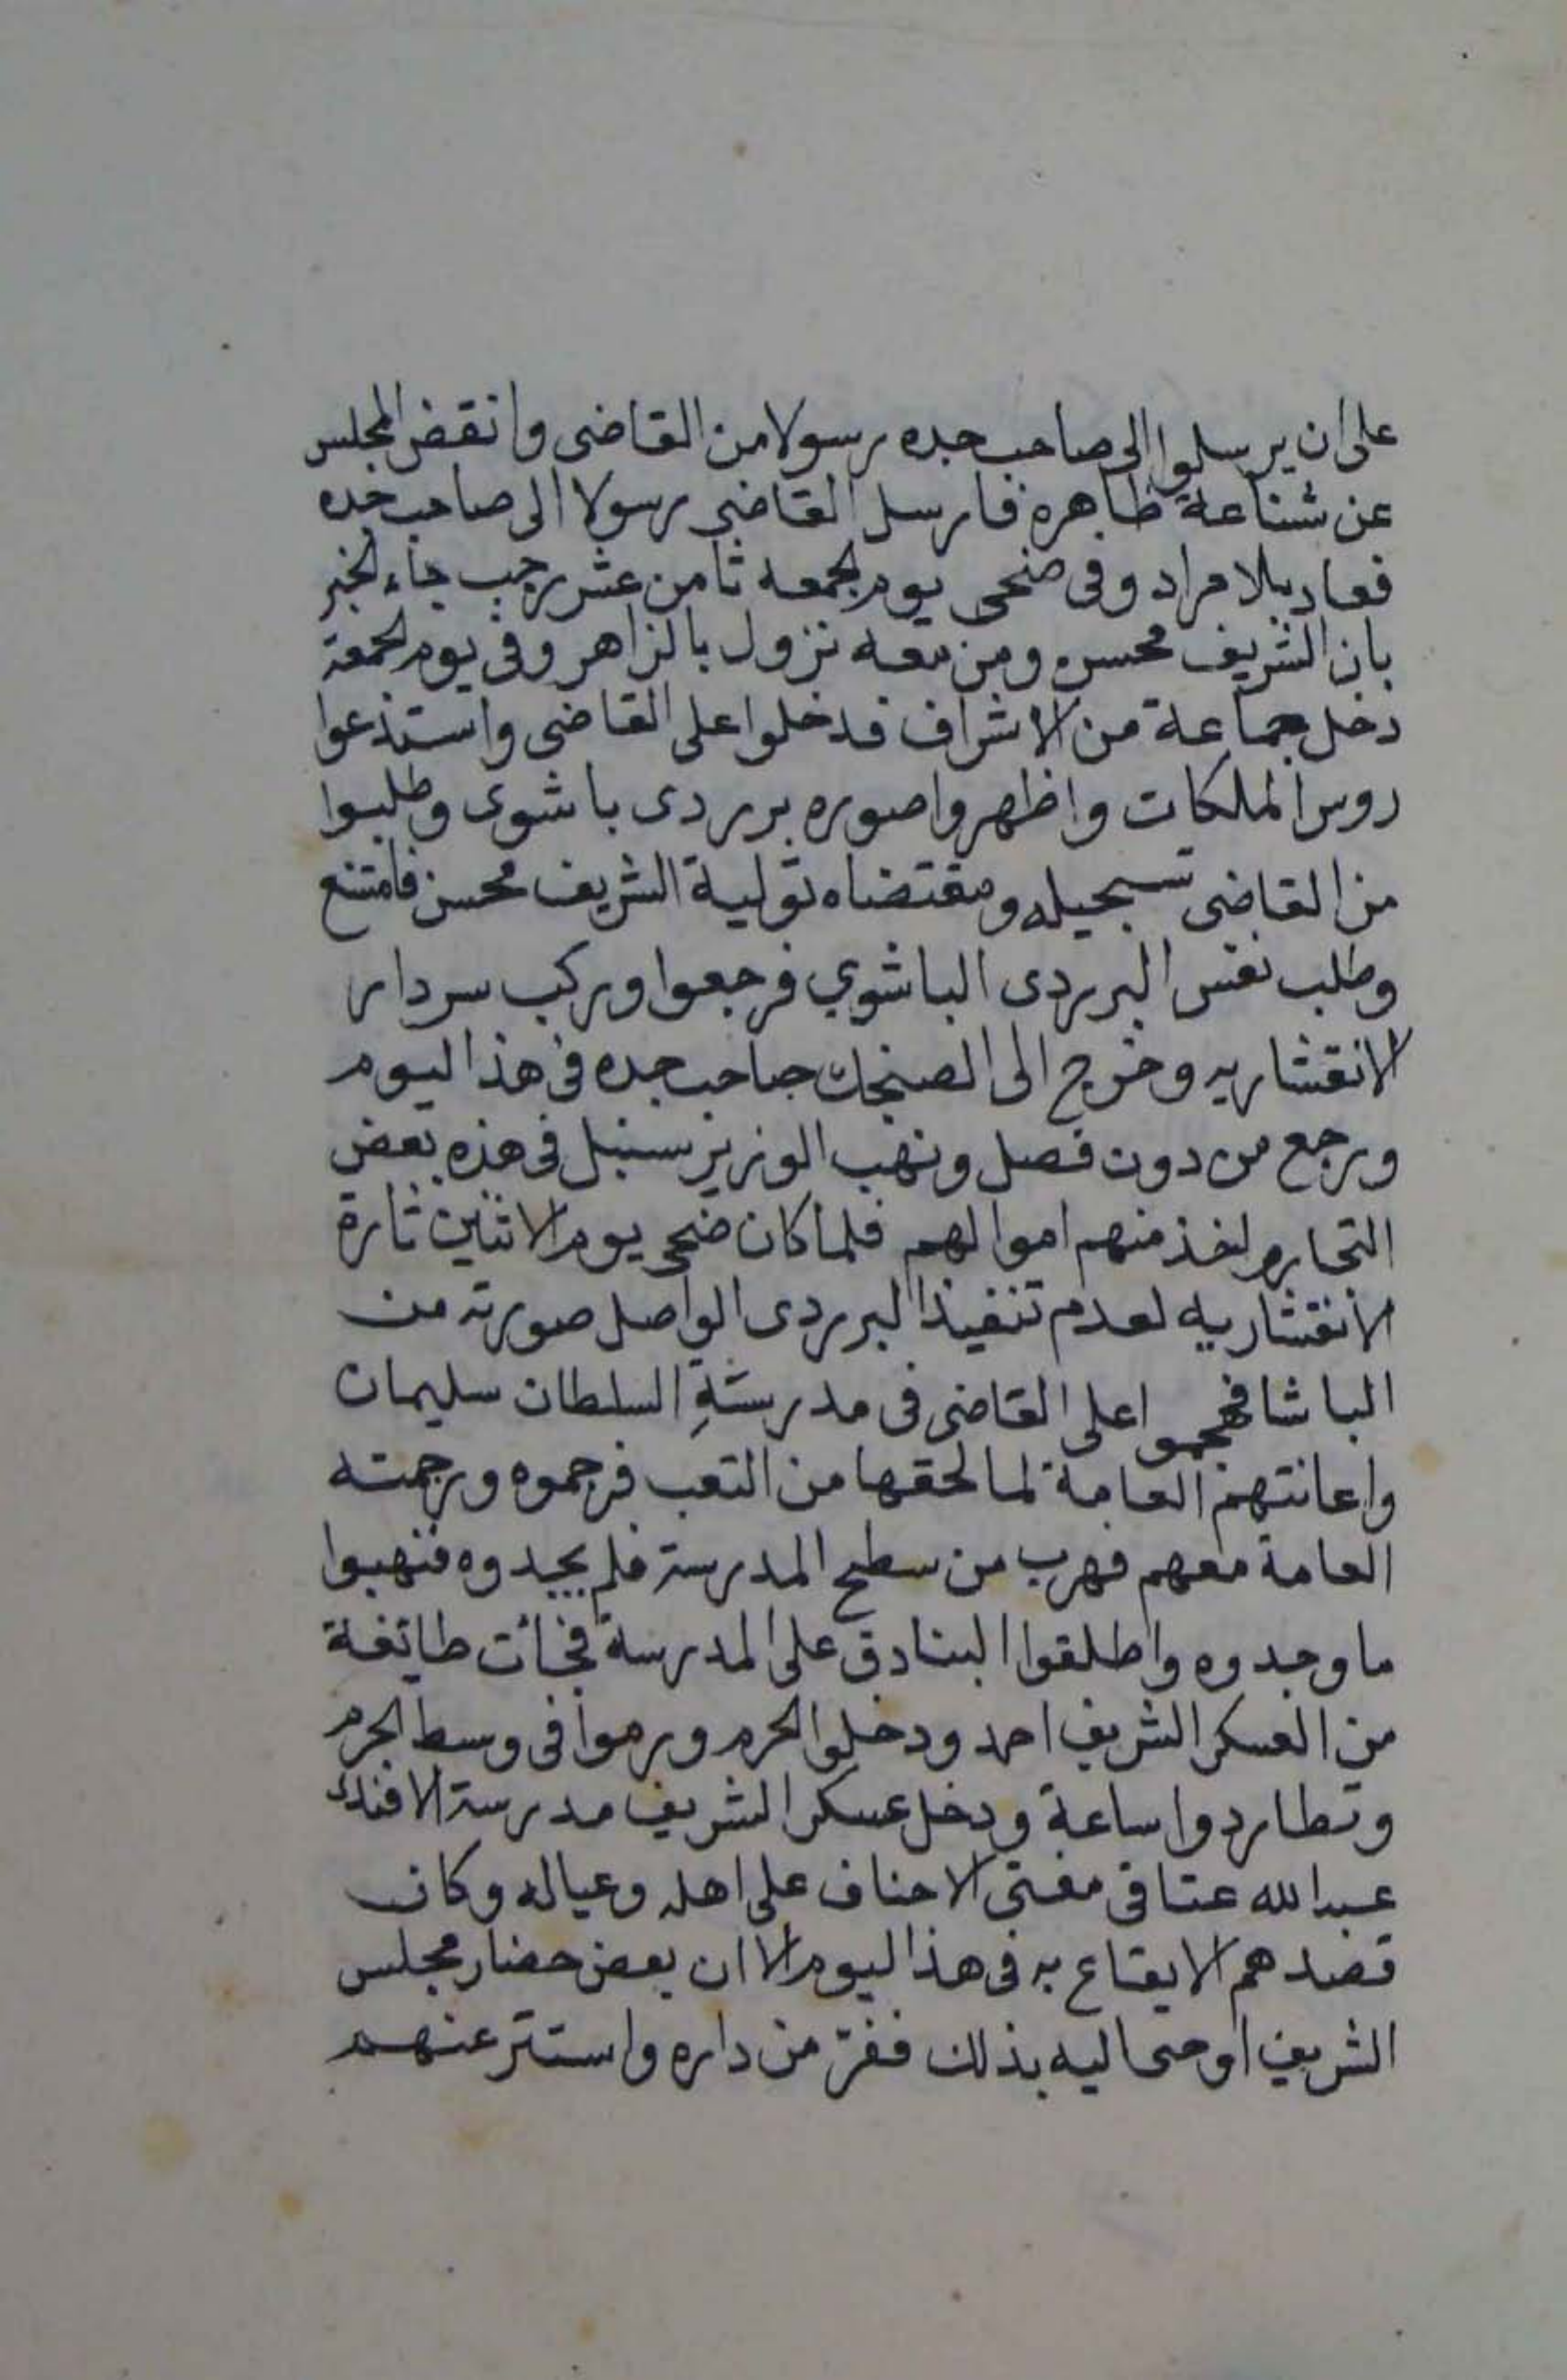 على ان يرسلوا الى صاحب جده رسولا من القاضى وانقض المجلس
عن شناعة ظاهرة فارسل القاضي رسولا الى صاحب جده
فعاد بلا مراد وفى ضحى يوم الجمعه ثامن عشر رجب جاء الخبر
بان الشريف محسن ومن معه نزول بالزاهر وفى يوم الجمعة
دخل جماعة من الاشراف فدخلوا على القاضى واستدعوا
روس الملكات واظهروا صوره بردى باشوى وطلبوا
من القاضى تسجيله ومقتضاه تولية الشريف محسن فامتنع
وطلب نفس البردى الباشوي فرجعوا وركب سردار
الانقشاريه وخرج الى الصنجك صاحب جده فى هذا اليوم
ورجع من دون فصل ونهب الوزير سنبل فى هذه بعض
التجار واخذ منهم اموالهم فلما كان ضحى يوم الاثنين ثارة
الانقشاريه لعدم تنفيذ البردى الواصل صورته من
الباشا فهجموا على القاضى فى مدرسة السلطان سليمان
واعانتهم العامة لما لحقها من التعب فرجموه ورجمته
العامة معهم فهرب من سطح المدرسة فلم يجدوه فنهبوا
ما وجدوه واطلقوا البنادق على المدرسة فجائت طايفة
من العسكر الشريف احمد ودخلوا الحرم ورموا فى وسط الحرم
وتطاردوا ساعة ودخل عسكر الشريف مدرسة الافندى
عبد الله عتاقى مفتى الاحناف على اهله وعياله وكان
قصدهم الايقاع به فى هذا اليوم الا ان بعض حضار مجلس
الشريف اوحى اليه بذلك ففرّ من داره واستتر عنهم